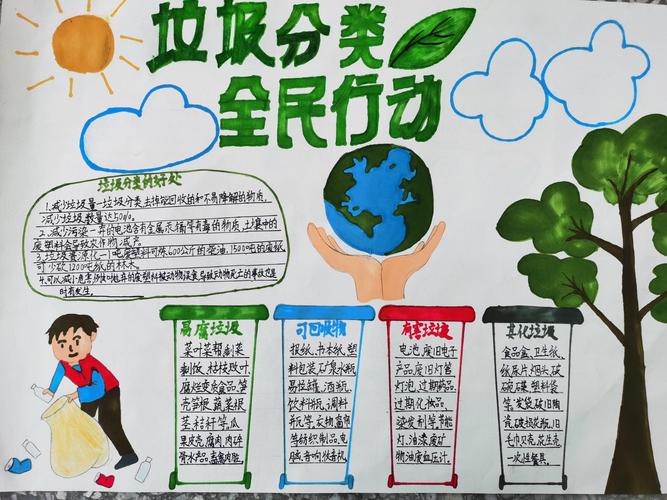 垃圾分类
全民行动
垃圾分类的好处
1.减少垃圾量—垃圾分类,去掉能回收的和不易降解的物质,
减少垃圾数量达50%。
2.减少污染—弃的电池含有金属汞、镉等有毒的物质,土壤中的
废塑料会导致农作物减产。
3.垃圾资源化—1吨废塑料可炼600公斤的柴油,1500吨的废纸
可少砍1200吨纸的林木。
4.可以减小危害
时有发生。
易腐垃圾
菜叶菜帮、剩菜
剩饭、枯枝败叶、
腐烂变质食品、笋
壳笋根、蔬菜根
茎、秸秆等、瓜
果皮壳、腐肉、肉碎
骨水产品、畜禽内脏。
可回收物
报纸、书本纸、塑
料包装、矿泉水瓶、
易拉罐、酒瓶、
饮料瓶、调料
瓶等、衣物、窗帘
等纺织制品、电
脑、音响、收音机。
有害垃圾
电池、废旧电子
产品、废旧灯管、
灯泡、过期药品、
过期化妆品、
染发剂等、节能
灯、油漆、废矿
物油、废血压计。
其他垃圾
食品盒、卫生纸、
纸尿片、烟头、破
碗碟、塑料袋
等、发袋、破旧陶
瓷、破损花瓶、旧
毛巾、贝壳、花生壳、
一次性餐具。